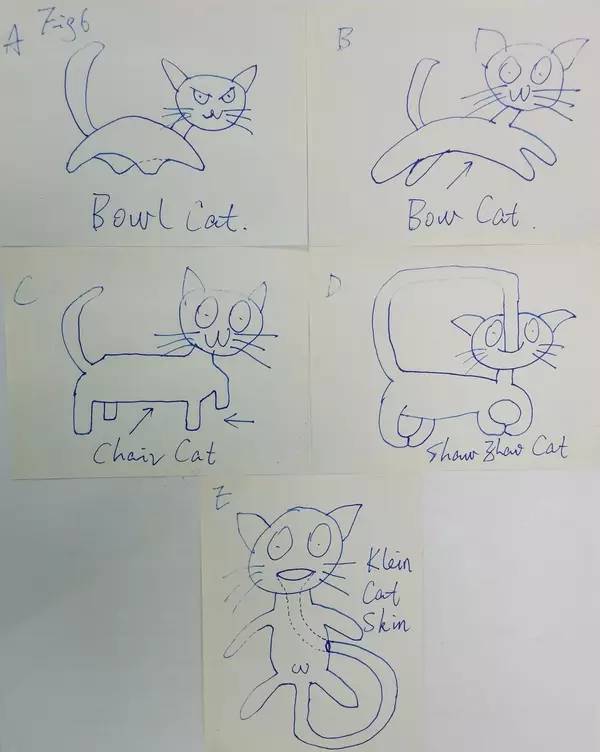 A Fig6
Bowl Cat.
B
Bow Cat.
C
Chair Cat
D
Cat
E
Klein
Cat
Skin